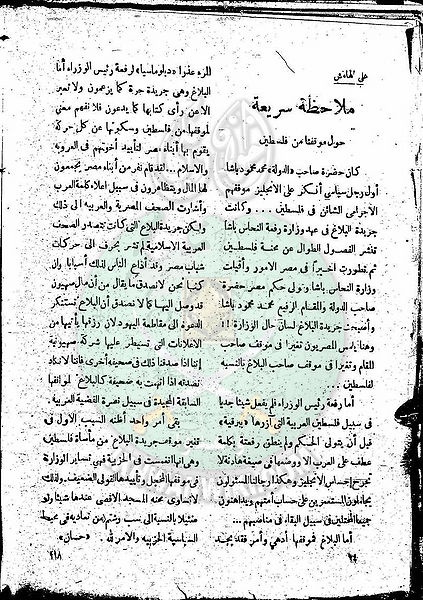 على الهامش
ملاحظة سريعة
حول موقفنا من فلسطين
كان حضرة صاحب «الدولة» محمد محمود باشا
أول رجل سياسي أنكر على الانجليز موقفهم
الاجرامي الشائن في فلسطين ... وكانت
جريدة البلاغ في عهد وزارة رفعة النحاس باشا
تنشر الفصول الطوال عن محنة فلسطين
ثم تطورت أخيراً في مصر الامور وأقيلت
وزارة النحاس باشا وتولى حكم مصر حضرة
صاحب الدولة والمقام الرفيع محمد محمود باشا
وأضحت جريدة البلاغ لسان حال الوزارة !!
وهنا يلمس المصريون تغيراً في موقف صاحب
الدولة وتغيرا في موقف صاحب البلاغ بالنسبة
لفلسطين ..
أما رفعة رئيس الوزراء فلم يفعل شيئا جديا
في سبيل فلسطين العربية التي آزرها «ببرقية»
قبل أن يتولى الحكم ولم ينطق رفعته بكلمة
عطف على العرب الا ووضعها في صيغة هادئة لا
تجرح إحساس الانجليز وهكذا رجالنا المسئولون
يجاملون المستعمرين على حساب أمتهم ويداهنون
جميعا المحتلين في سبيل البقاء في مناصبهم ...
أما البلاغ فموقفها أدهى وأمر فقد يجد
٢٤
المرء عذراً «دبلوماسيا» لرفعة رئيس الوزراء أما
البلاغ وهي جريدة حرة كما يزعمون ولا تعبر
الا عن رأي كتابها كما يدعون فلا نفهم معنى
لموقفها من فلسطين وسكوتها عن كل حركة
يقوم بها أبناء مصر لتأييد أخوتهم في العروبة
والاسلام ... لقد قام نفر من أبناء مصر يجمعون
لها المال ويتظاهرون في سبيل اعلاء كلمة العرب
وأشارت الصحف المصرية والعربية الى ذلك
ولكن جريدة البلاغ التي كانت تتصدر الصحف
العربية الاسلامية لم تشر بحرف الى حركات
شباب مصر وقد أذاع الناس لذلك أسبابا وان
كنا نحن لا نصدق ما يقال من أن مال صهيون
قد وصل اليها كما لا نصدق أن البلاغ تستنكر
الدعوة الى مقاطعة اليهود لان رزقها يأتيها من
الاعلانات التي تسيطر عليها شركة صهيونية
إننا اذا صدقنا ذلك في صحيفة أخرى فاننا لا نكاد
نصدقه اذا اتهمت به صحيفة كالبلاغ لمواقفها
السابقة المجيدة في سبيل نصرة القضية العربية.
بقي أمر واحد أظنه السبب الاول في
تغير موقف جريدة البلاغ من مأساة فلسطين
وهي انها انغمست في الحزبية فهي تساير الوزارة
في موقفها المخجل وتأييدها لقول الضعيف. ولذلك
لا تساوى محنة المسجد الاقصى عندها شيئا ولو
ضئيلا بالنسبة الى سب وشتم من تعاديه في محيط
السياسية الحزبية والامر لله . «حسان»
٤١٨